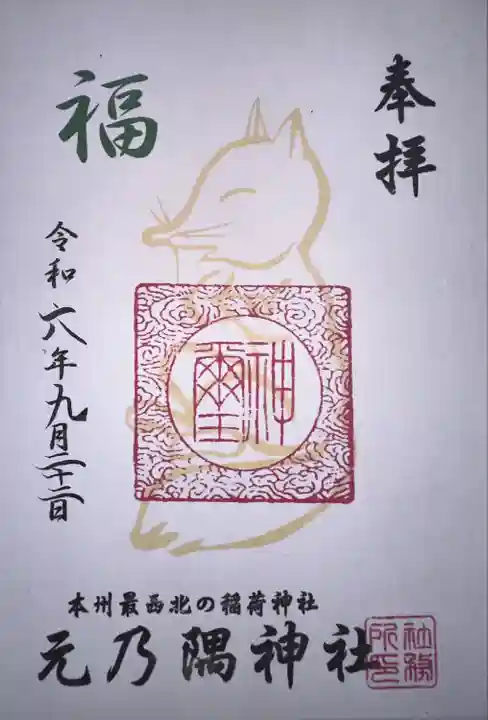 奉拝
福
神璽
令和六年九月二十二日
本州最西北の稲荷神社
元乃隅神社
社務所印